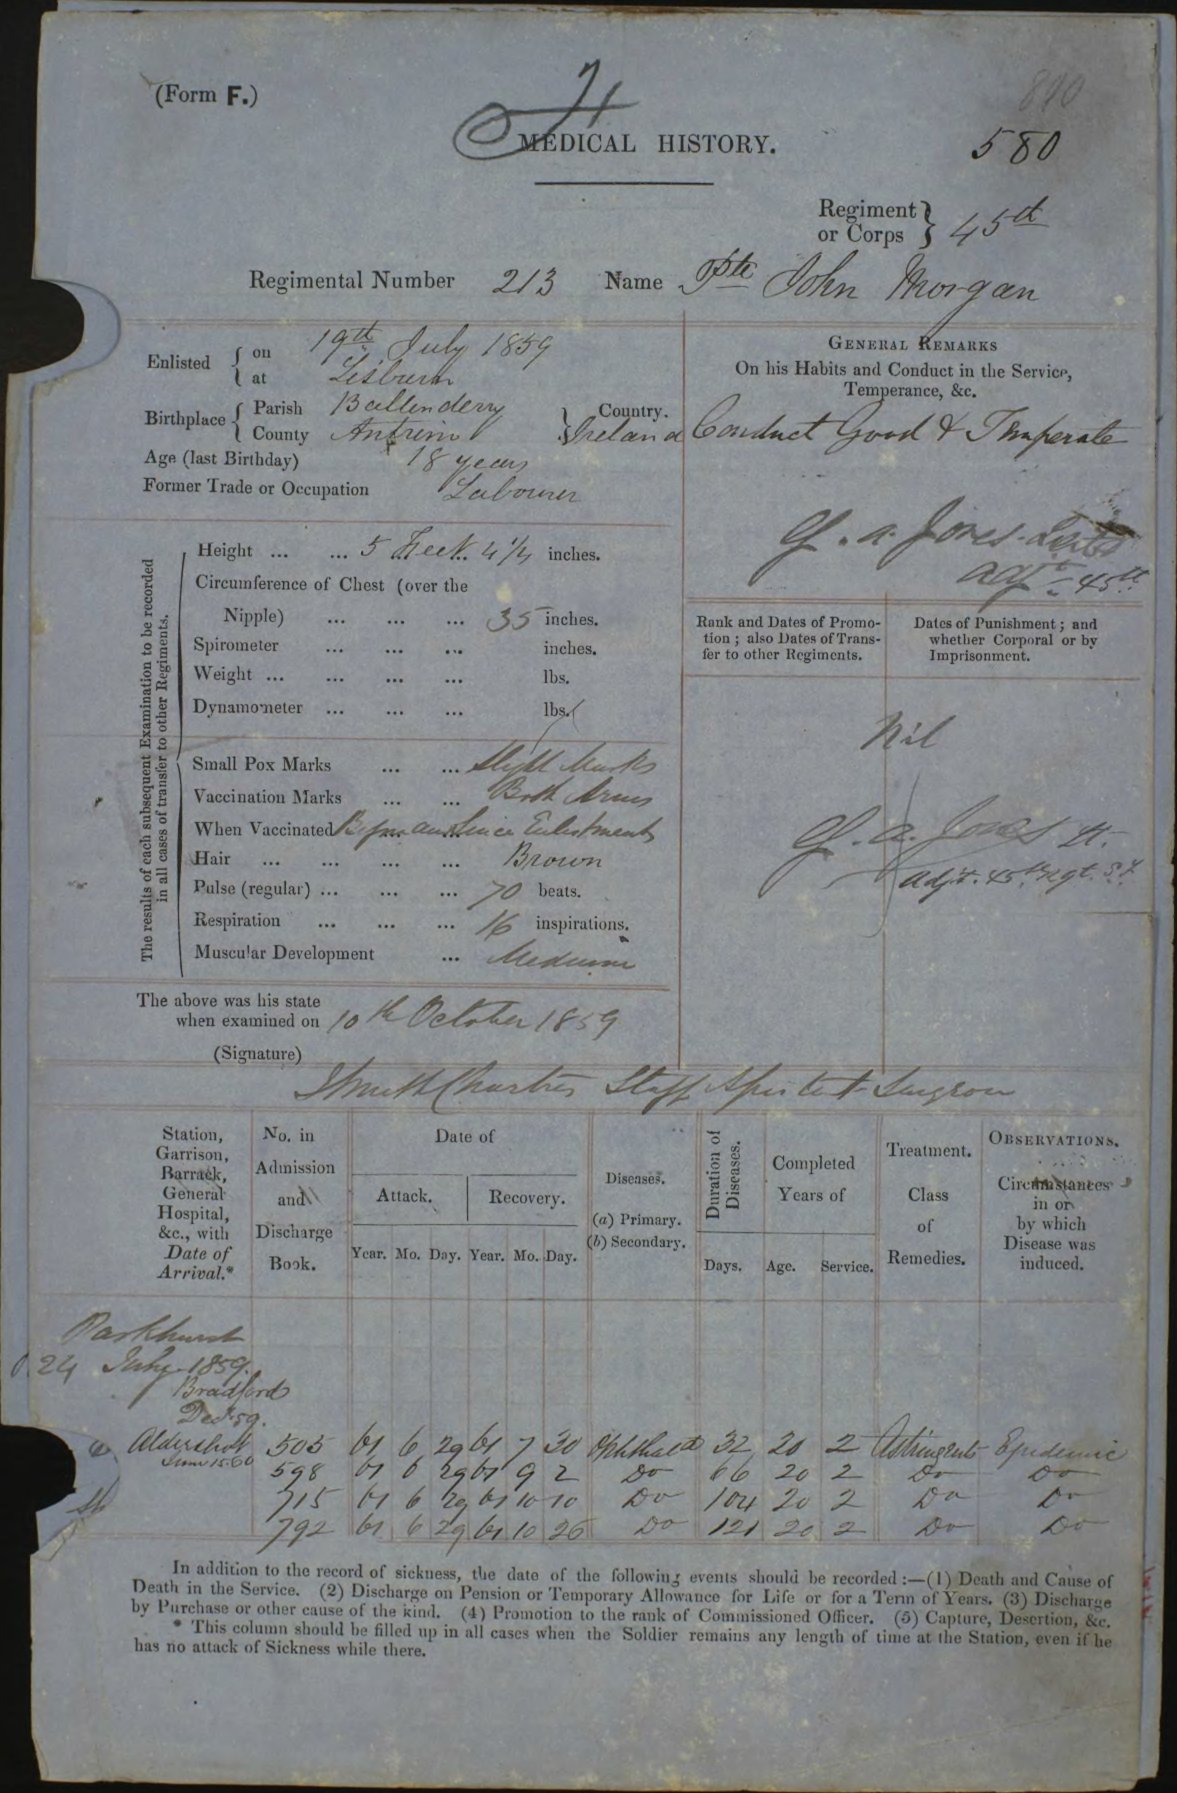 (Form F.)
890
580
MEDICAL HISTORY.
Regiment or Corps } 45th
Regimental Number 213 Name Pte John Morgan
Enlisted { on 19th July 1859
at Lisburn
Birthplace { Parish Ballenderry
County Antrim } Country. Ireland
Age (last Birthday) 18 years
Former Trade or Occupation Labourer
GENERAL REMARKS
On his Habits and Conduct in the Service,
Temperance, &c.
Conduct Good & Temperate
G. a. Jones Lieut
adjt 45th
The results of each subsequent Examination to be recorded
in all cases of transfer to other Regiments.
Height ... ... 5 Feet 4 1/4 inches.
Circumference of Chest (over the
Nipple) ... ... ... 35 inches.
Spirometer ... ... ... inches.
Weight ... ... ... ... lbs.
Dynamometer ... ... ... lbs.
Small Pox Marks ... ... Slight Marks
Vaccination Marks ... ... Both Arms
When Vaccinated Before and Since Enlistment
Hair ... ... ... ... Brown
Pulse (regular) ... ... ... 70 beats.
Respiration ... ... ... 16 inspirations.
Muscular Development ... Medium
The above was his state
when examined on 10th October 1859
(Signature)
Chartres Staff Assistant Surgeon
Rank and Dates of Promotion; also Dates of Transfer to other Regiments.
Dates of Punishment; and
whether Corporal or by
Imprisonment.
Nil
G. a. Jones Lt.
adjt. 45th Regt.
Station,
Garrison,
Barrack,
General
Hospital,
&c., with
Date of
Arrival.*
No. in
Admission
and
Discharge
Book.
Date of
Attack. Recovery.
Year. Mo. Day. Year. Mo. Day.
Diseases.
(a) Primary.
(b) Secondary.
Duration of
Diseases.
Days.
Completed
Years of
Age. Service.
Treatment.
Class
of
Remedies.
OBSERVATIONS.
Circumstances
in or
by which
Disease was
induced.
Parkhurst
24 July 1859.
Bradford
Dec. 59.
Aldershot 505 61 6 29 61 7 30 Ophthalia 32 20 2 Astringents Epidemic
June 15. 60
598 61 6 29 61 9 2 Do 66 20 2 Do Do
715 61 6 29 61 10 10 Do 104 20 2 Do Do
792 61 6 29 61 10 26 Do 121 20 2 Do Do
In addition to the record of sickness, the date of the following events should be recorded:—(1) Death and Cause of
Death in the Service. (2) Discharge on Pension or Temporary Allowance for Life or for a Term of Years. (3) Discharge
by Purchase or other cause of the kind. (4) Promotion to the rank of Commissioned Officer. (5) Capture, Desertion, &c.
* This column should be filled up in all cases when the Soldier remains any length of time at the Station, even if he
has no attack of Sickness while there.